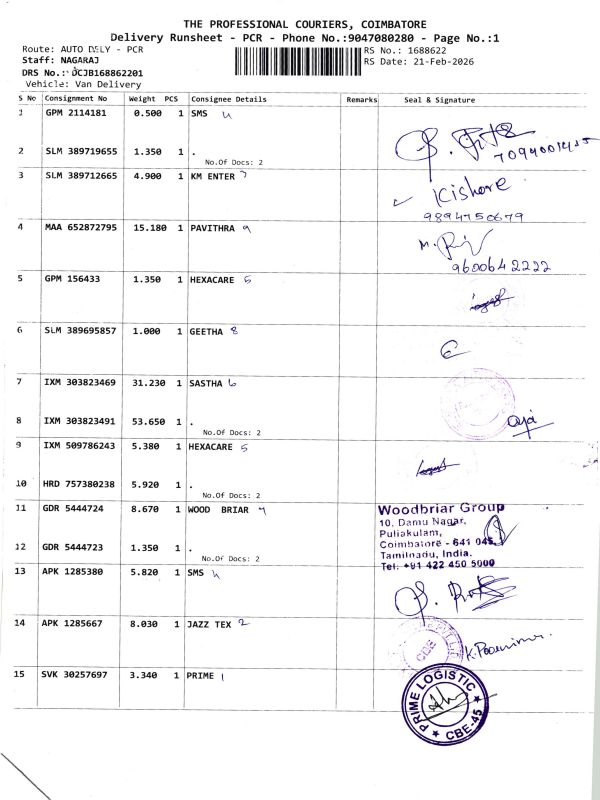 THE PROFESSIONAL COURIERS, COIMBATORE
Delivery Runsheet - PCR - Phone No.:9047080280 - Page No.:1
Route: AUTO DELY - PCR
RS No.: 1688622
Staff: NAGARAJ
RS Date: 21-Feb-2026
DRS No.: DCJB168862201
Vehicle: Van Delivery
S No Consignment No Weight PCS Consignee Details Remarks Seal & Signature
1 GPM 2114181 0.500 1 SMS 4
2 SLM 389719655 1.350 1 .
No.Of Docs: 2
3 SLM 389712665 4.900 1 KM ENTER 7 Kishore
9894750679
4 MAA 652872795 15.180 1 PAVITHRA 9
9600642222
5 GPM 156433 1.350 1 HEXACARE 5
6 SLM 389695857 1.000 1 GEETHA 8
7 IXM 303823469 31.230 1 SASTHA 6
8 IXM 303823491 53.650 1 .
No.Of Docs: 2
9 IXM 509786243 5.380 1 HEXACARE 5
10 HRD 757380238 5.920 1 .
No.Of Docs: 2
11 GDR 5444724 8.670 1 WOOD BRIAR
Woodbriar Group
10, Damu Nagar,
Puliakulam,
Coimbatore - 641 045.
Tamilnadu, India.
Tel: +91 422 450 5000
12 GDR 5444723 1.350 1 .
No.Of Docs: 2
13 APK 1285380 5.820 1 SMS 4
14 APK 1285667 8.030 1 JAZZ TEX 2
CBE
15 SVK 30257697 3.340 1 PRIME 1
PRIME LOGISTIC
CBE-45